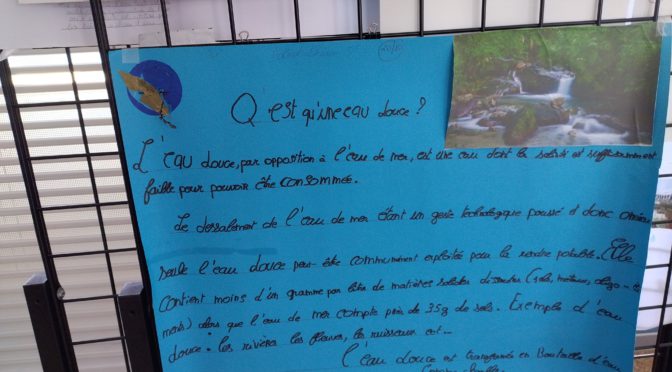 Q'est qu'une eau douce ?
L'eau douce, par opposition à l'eau de mer, est une eau dont la salinité est suffisamment
faible pour pouvoir être consommée.
Le dessalement de l'eau de mer étant un geste technologique poussé et donc
seule l'eau douce peut-être communément exploitée pour la rendre potable. Elle
contient moins d'un gramme par litre de matières solides dissoutes (sels, métaux,
ments) alors que l'eau de mer compte près de 35g de sels. Exemple d'eau
douce : les rivière les fleuves, les ruisseaux ect...
l'eau douce est transformée en Bouteille d'eau